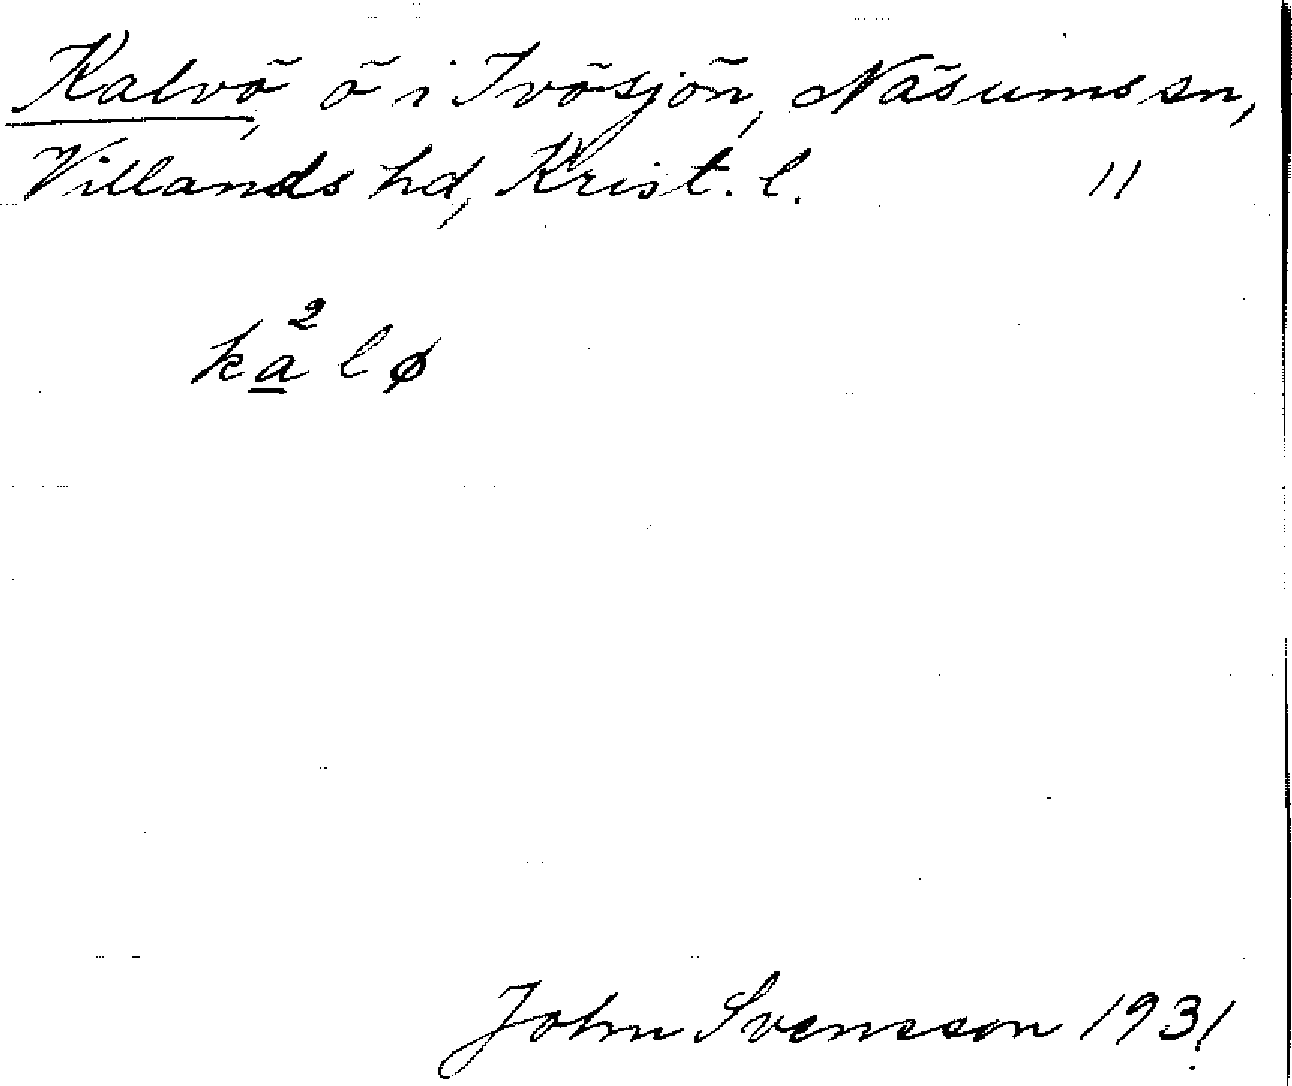 Kalvö, ö i Ivösjön, Näsums sn,
Villands hd, Krist. l. 11
ka²lø
John Svensson 1931